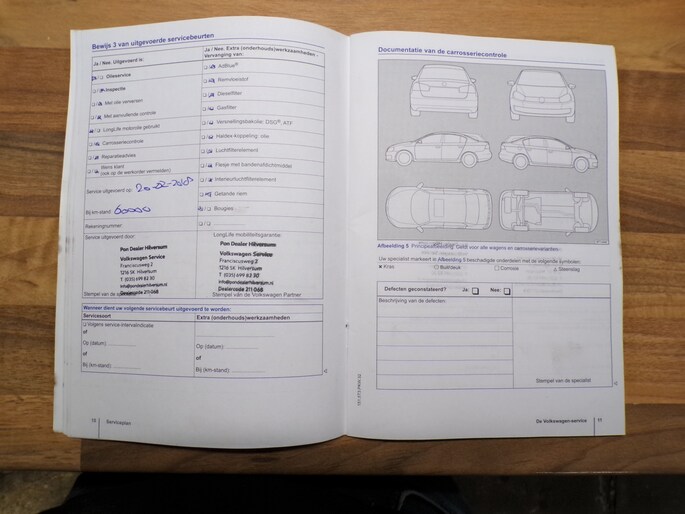 Bewijs 3 van uitgevoerde servicebeurten
Ja / Nee. Uitgevoerd is:
Ja / Nee. Extra (onderhouds)werkzaamheden -
Vervanging van:
Olieservice
Inspectie
Met olie verversen
Met aanvullende controle
LongLife motorolie gebruikt
Carrosseriecontrole
Reparatieadvies
Wens klant
(ook op de werkorder vermelden)
Service uitgevoerd op:
Bij km-stand: 60000
Rekeningnummer:
AdBlue®
Remvloeistof
Dieselfilter
Gasfilter
Versnellingsbakolie: DSG®, ATF
Haldex-koppeling: olie
Luchtfilterelement
Flesje met bandendichtmiddel
Interieurluchtfilterelement
Getande riem
Bougies
Service uitgevoerd door:
Pon Dealer Hilversum
Volkswagen Service
Franciscusweg 2
1216 SK Hilversum
T (035) 699 62 30
Dealercode 211 068
LongLife mobiliteitsgarantie:
Pon Dealer Hilversum
Volkswagen Service
Franciscusweg 2
1216 SK Hilversum
T (035) 699 62 30
Dealercode 211 068
Stempel van de Volkswagen Partner
Wanneer dient uw volgende servicebeurt uitgevoerd te worden:
Servicesoort
Extra (onderhouds)werkzaamheden
Volgens service-intervalindicatie
of
Op (datum)
of
Bij (km-stand)
Op (datum)
of
Bij (km-stand)
Serviceplan
Documentatie van de carrosseriecontrole
Afbeelding 5 Principeafbeelding: Geldt voor alle wagens en carrosserievarianten
Uw specialist markeert in Afbeelding 5 beschadigde onderdelen met de volgende symbolen:
Kras
Corrosie
Steenslag
Defecten geconstateerd? Ja: Nee:
Beschrijving van de defecten:
Stempel van de specialist
De Volkswagen-service 11